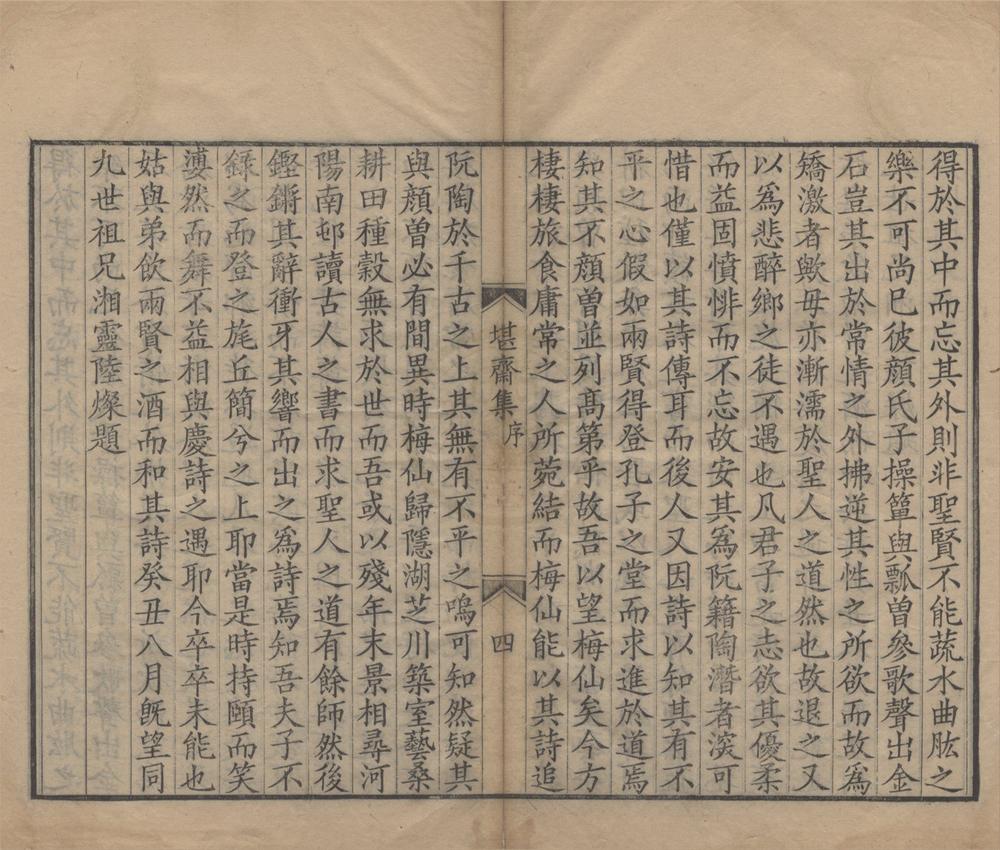 得於其中而忘其外則非聖賢不能蔬水曲肱之
樂不可尚已彼顏氏子操簞與瓢曽參歌聲出金
石豈其出於常情之外拂逆其性之所欲而故為
矯激者歟毋亦漸濡於聖人之道然也故退之又
以為悲醉鄉之徒不遇也凡君子之志欲其優柔
而益固憤悱而不忘故安其為阮籍陶潛者深可
惜也僅以其詩傳耳而後人又因詩以知其有不
平之心假如兩賢得登孔子之堂而求進於道焉
知其不顏曽並列髙第乎故吾以望梅仙矣今方
棲棲旅食庸常之人所菀結而梅仙能以其詩追
堪齋集 序
四
阮陶於千古之上其無有不平之鳴可知然疑其
與顏曽必有間異時梅仙歸隱湖芝川築室藝桑
耕田種穀無求於世而吾或以殘年末景相尋河
陽南邨讀古人之書而求聖人之道有餘師然後
鏗鏘其辭衝牙其響而出之為詩焉知吾夫子不
錄之而登之旄丘簡兮之上耶當是時持頤而笑
漙然而舞不益相與慶詩之遇耶今卒卒未能也
姑與弟飲兩賢之酒而和其詩癸丑八月旣望同
九世祖兄湘靈陸燦題